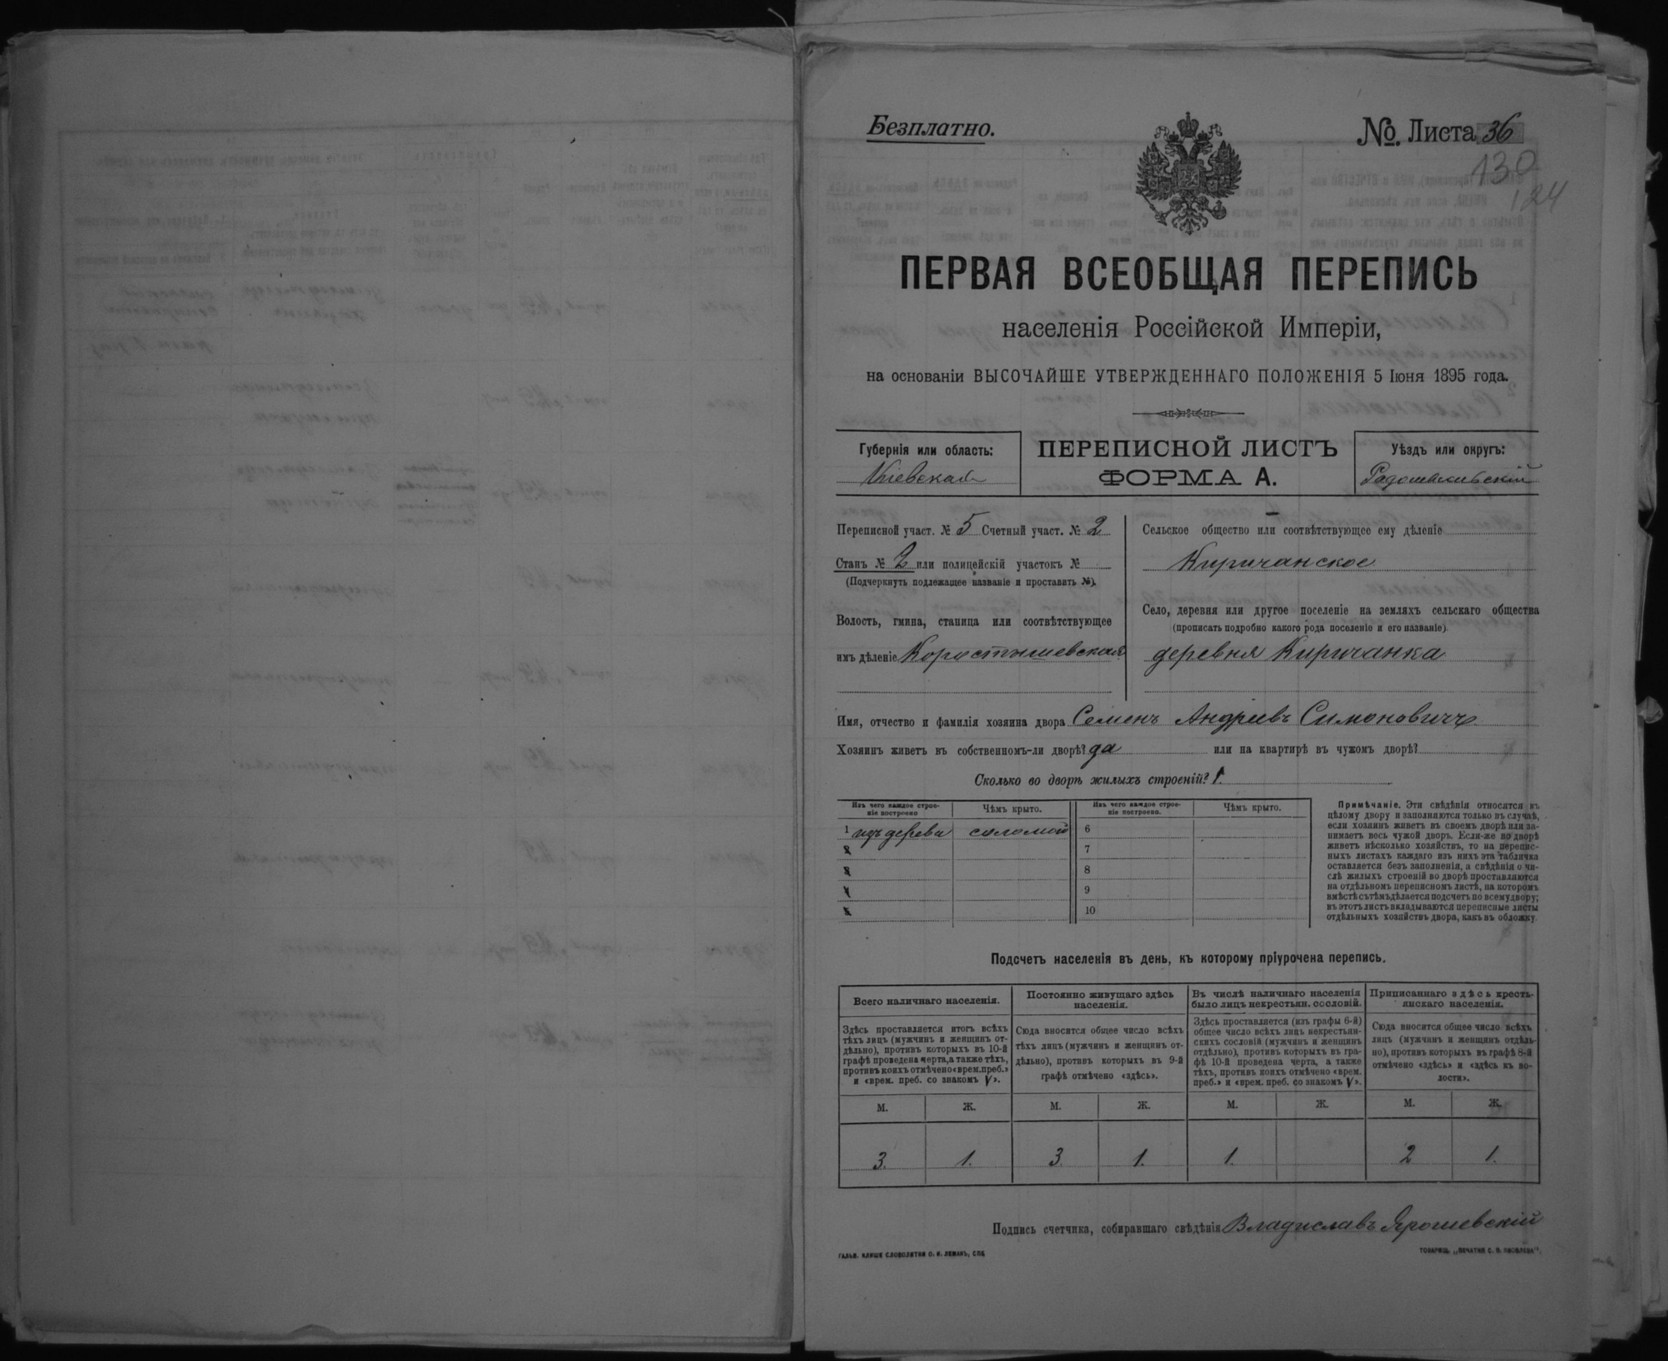 Безплатно.
№. Листа 36
130
124
ПЕРВАЯ ВСЕОБЩАЯ ПЕРЕПИСЬ
населенія Россійской Имперіи,
на основаніи ВЫСОЧАЙШЕ УТВЕРЖДЕННАГО ПОЛОЖЕНІЯ 5 Іюня 1895 года.
Губернія или область:
Кіевская
ПЕРЕПИСНОЙ ЛИСТЪ
ФОРМА А.
Уѣздъ или округъ:
Радомысльскій
Переписной участ. № 5 Счетный участ. № 2
Станъ № 2 или полицейскій участокъ №
(Подчеркнуть подлежащее названіе и проставить №).
Волость, гмина, станица или соотвѣтствующее
имъ дѣленіе Коростышевская
Сельское общество или соотвѣтствующее ему дѣленіе
Киричанское
Село, деревня или другое поселеніе на земляхъ сельскаго общества
(прописать подробно какого рода поселеніе и его названіе)
деревня Киричанка
Имя, отчество и фамилія хозяина двора Семенъ Андріевъ Симоновичъ
Хозяинъ живетъ въ собственномъ-ли дворѣ? да или на квартирѣ въ чужомъ дворѣ?
Сколько во дворѣ жилыхъ строеній? 1.
Изъ чего каждое строе-
ніе построено
Чѣмъ крыто.
Изъ чего каждое строе-
ніе построено.
Чѣмъ крыто.
1 изъ дерева соломой 6
2 7
3 8
4 9
5 10
Примѣчаніе. Эти свѣдѣнія относятся къ
цѣлому двору и заполняются только въ случаѣ,
если хозяинъ живетъ въ своемъ дворѣ или за-
нимаетъ весь чужой дворъ. Если-же во дворѣ
живетъ нѣсколько хозяйствъ, то на перепис-
ныхъ листахъ каждаго изъ нихъ эта табличка
оставляется безъ заполненія, а свѣдѣнія о чи-
слѣ жилыхъ строеній во дворѣ проставляются
на отдѣльномъ переписномъ листѣ, на которомъ
вмѣстѣ съ тѣмъ дѣлается подсчетъ по всему двору;
въ этотъ листъ вкладываются переписные листы
отдѣльныхъ хозяйствъ двора, какъ въ обложку.
Подсчетъ населенія въ день, къ которому пріурочена перепись.
Всего наличнаго населенія.
Постоянно живущаго здѣсь
населенія.
Въ числѣ наличнаго населенія
было лицъ некрестьян. сословій.
Приписаннаго здѣсь кресть-
янскаго населенія.
Здѣсь проставляется итогъ всѣхъ
тѣхъ лицъ (мужчинъ и женщинъ от-
дѣльно), противъ которыхъ въ 10-й
графѣ проведена черта, а также тѣхъ,
противъ коихъ отмѣчено «врем. преб.»
и «врем. преб. со знакомъ V».
Сюда вносится общее число всѣхъ
тѣхъ лицъ (мужчинъ и женщинъ от-
дѣльно), противъ которыхъ въ 9-й
графѣ отмѣчено «здѣсь».
Здѣсь проставляется (изъ графы 6-й)
общее число всѣхъ лицъ некрестьян-
скихъ сословій (мужчинъ и женщинъ
отдѣльно), противъ которыхъ въ гра-
фѣ 10-й проведена черта, а также
тѣхъ, противъ коихъ отмѣчено «врем.
преб.» и «врем. преб. со знакомъ V».
Сюда вносится общее число всѣхъ
лицъ (мужчинъ и женщинъ отдѣль-
но), противъ которыхъ въ графѣ 8-й
отмѣчено «здѣсь» и «здѣсь въ во-
лости».
М. Ж. М. Ж. М. Ж. М. Ж.
3. 1. 3 1. 1. 2 1.
Подпись счетчика, собиравшаго свѣдѣнія Владиславъ Ярошевскій
ГАЛЬВ. КЛИШЕ СЛОВОЛИТНИ О. И. ЛЕМАНЪ, СПБ
ТОВАРИЩ. „ПЕЧАТНЯ С. П. ЯКОВЛЕВА“.